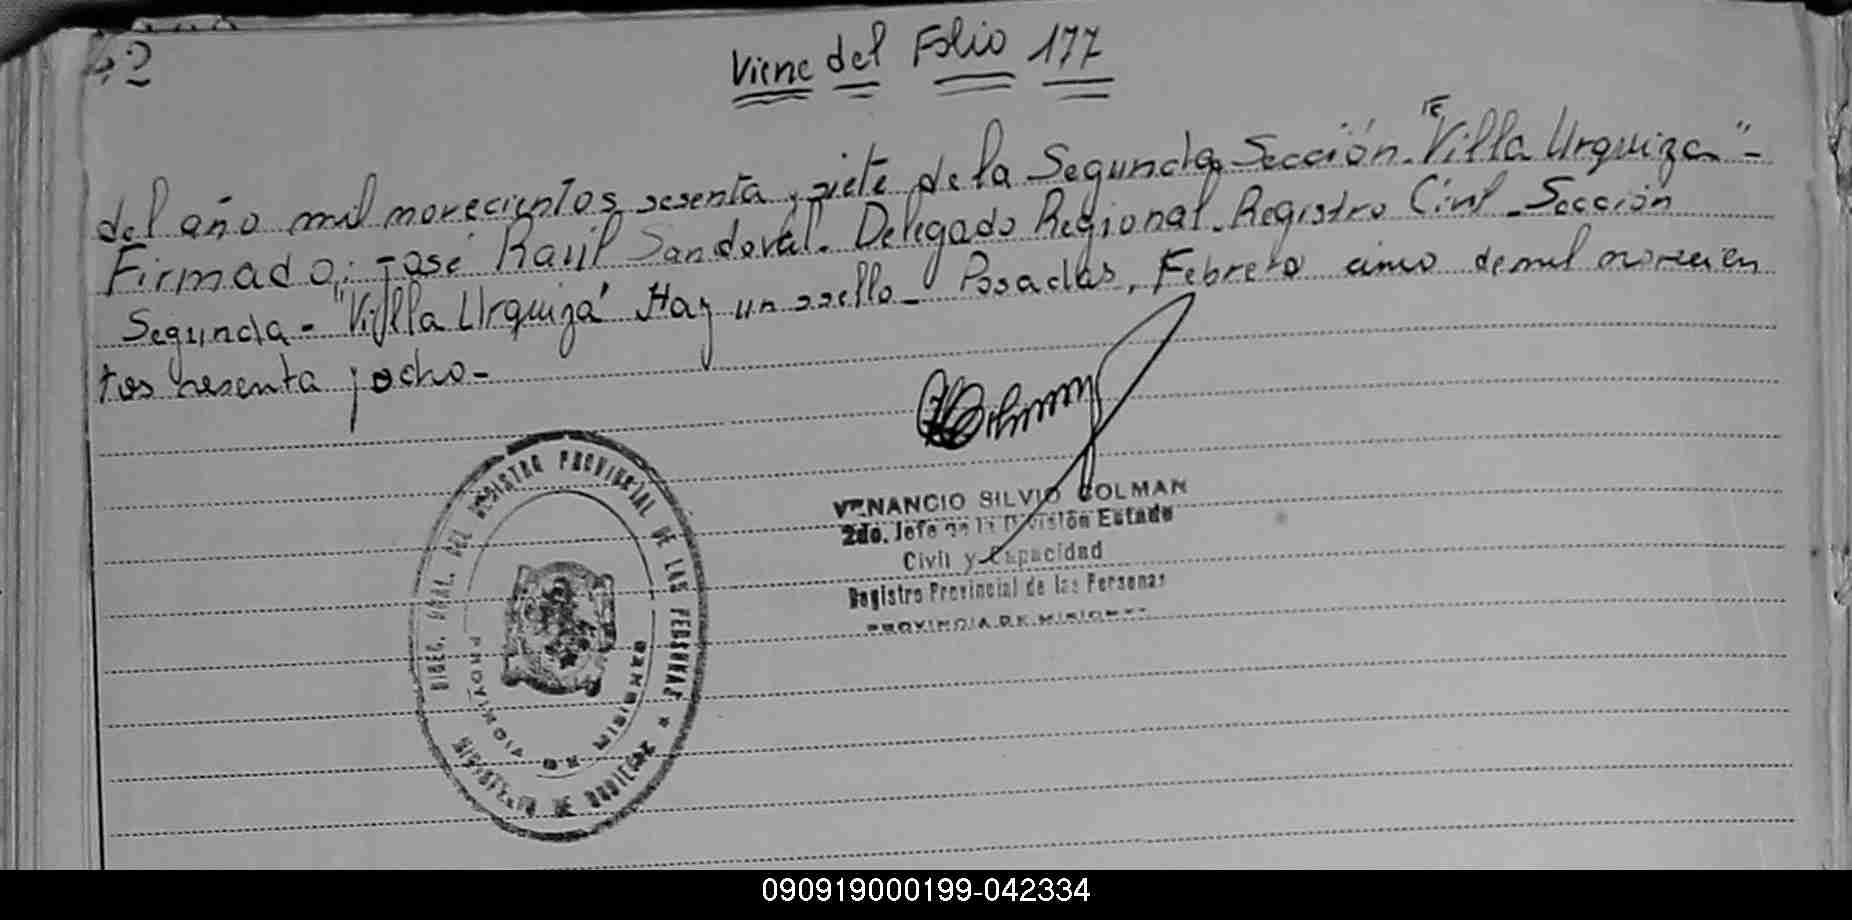 42
Viene del Folio 177
del año mil novecientos sesenta y siete de la Segunda Sección "Villa Urquiza"-
Firmado: José Raúl Sandoval. Delegado Regional. Registro Civil Sección
Segunda - "Villa Urquiza" Hay un sello - Posadas, Febrero cinco de mil novecien
tos sesenta y ocho-
VENANCIO SILVIO COLMAN
2do. Jefe de la División Estado
Civil y Capacidad
Registro Provincial de las Personas
PROVINCIA DE MISIONES
DIREC. GRAL. DEL REGISTRO PROVINCIAL DE LAS PERSONAS
MINISTERIO DE
PROVINCIA DE MISIONES
090919000199-042334